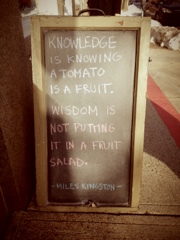 KNOWLEDGE
IS KNOWING
A TOMATO
IS A FRUIT.
WISDOM IS
NOT PUTTING
IT IN A FRUIT
SALAD.
-MILES KINGSTON-